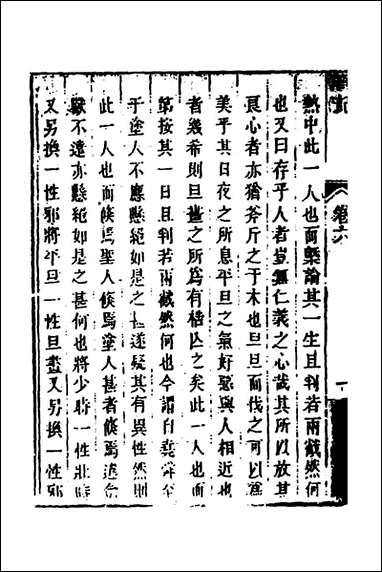 卷六
熱中此一人也而槩論其一生且判若兩截然何
也又曰存乎人者豈無仁義之心哉其所以放其
良心者亦猶斧斤之于木也旦旦而伐之可以爲
美乎其日夜之所息平旦之氣好惡與人相近也
者幾希則旦晝之所爲有梏亡之矣此一人也而
第按其一日且判若兩截然何也今謂自堯舜至
于塗人不應懸絕如是之甚遂疑其有異性然則
此一人也而倐爲聖人倐爲塗人甚者倐爲違禽
獸不遠亦懸絕如是之甚何也將少時一性壯時
又另換一性邪將平旦一性旦晝又另換一性邪